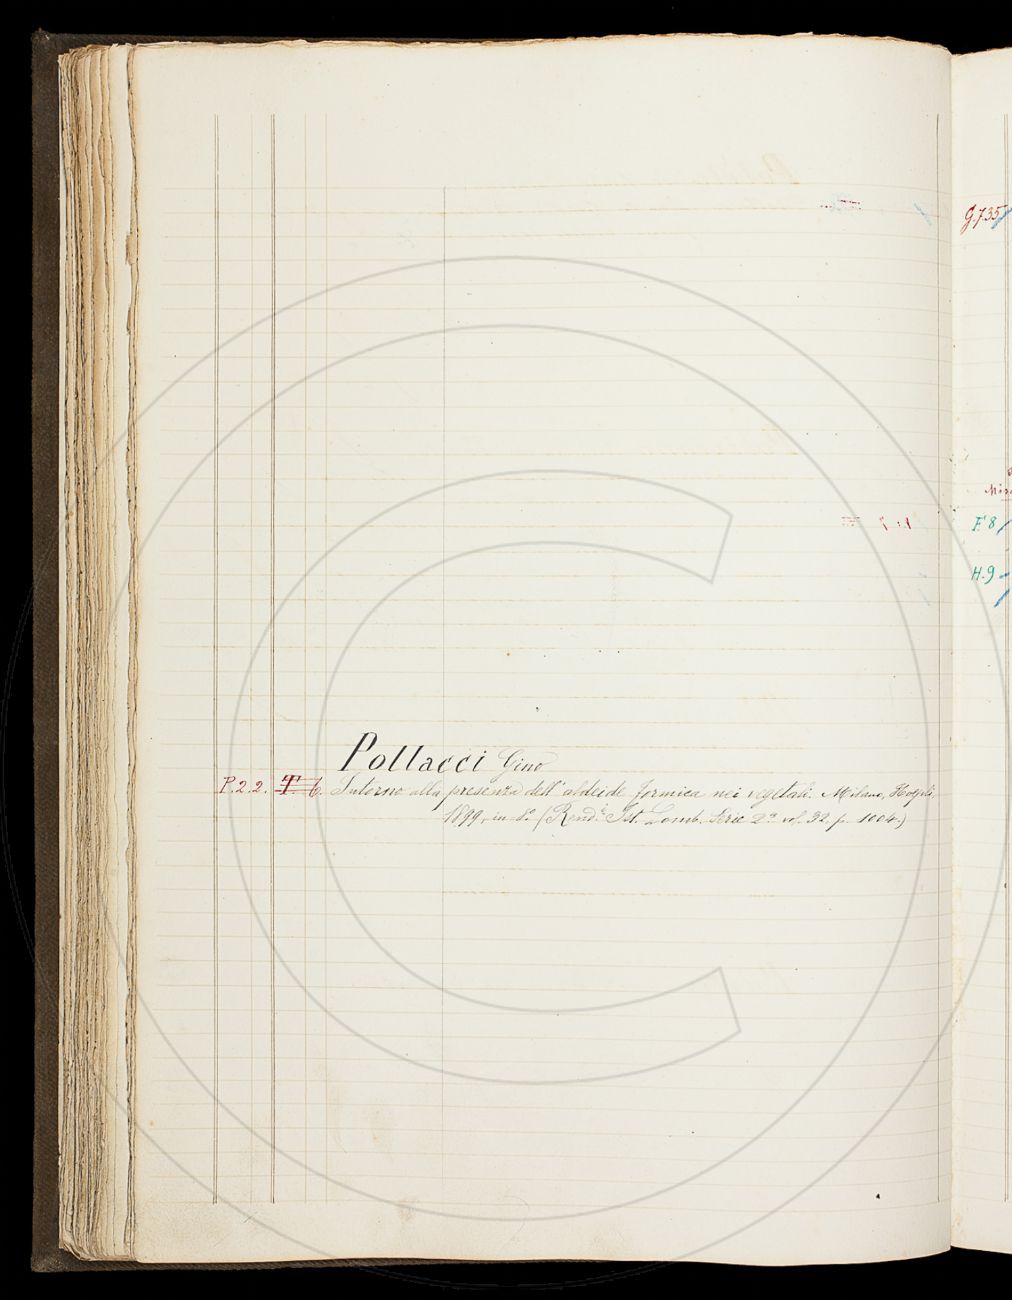 Pollacci Gino
P.2.2. T 6. Intorno alla presenza dell'aldeide formica nei vegetali. Milano, Hoepli,
1899, in 8º (Rend. Ist. Lomb. Serie 2ª vol. 32. p. 1004.)
G.7.35
F. 8
H.9